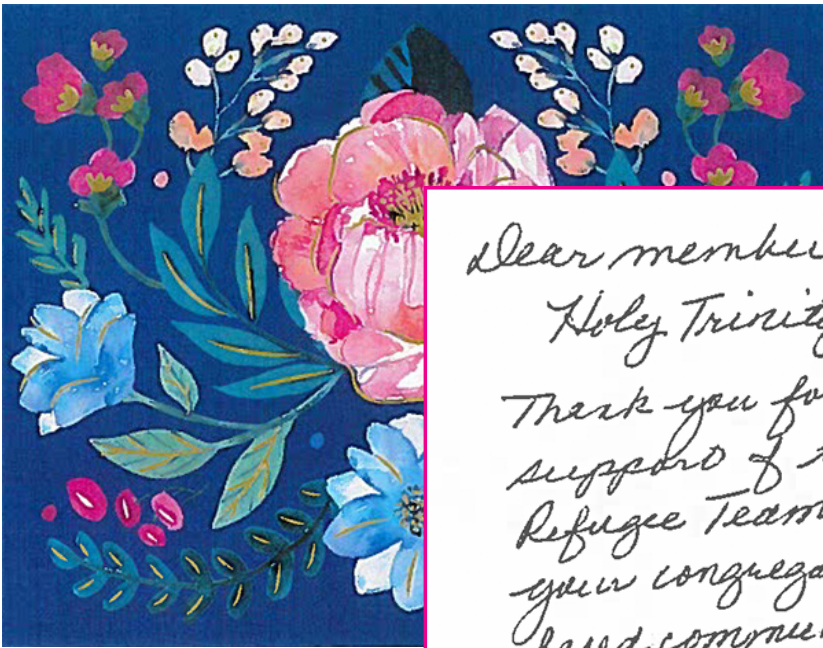 Dear membe
Holy Trinity
Thank you fo
support of
Refugee Team
your congrega
based commu